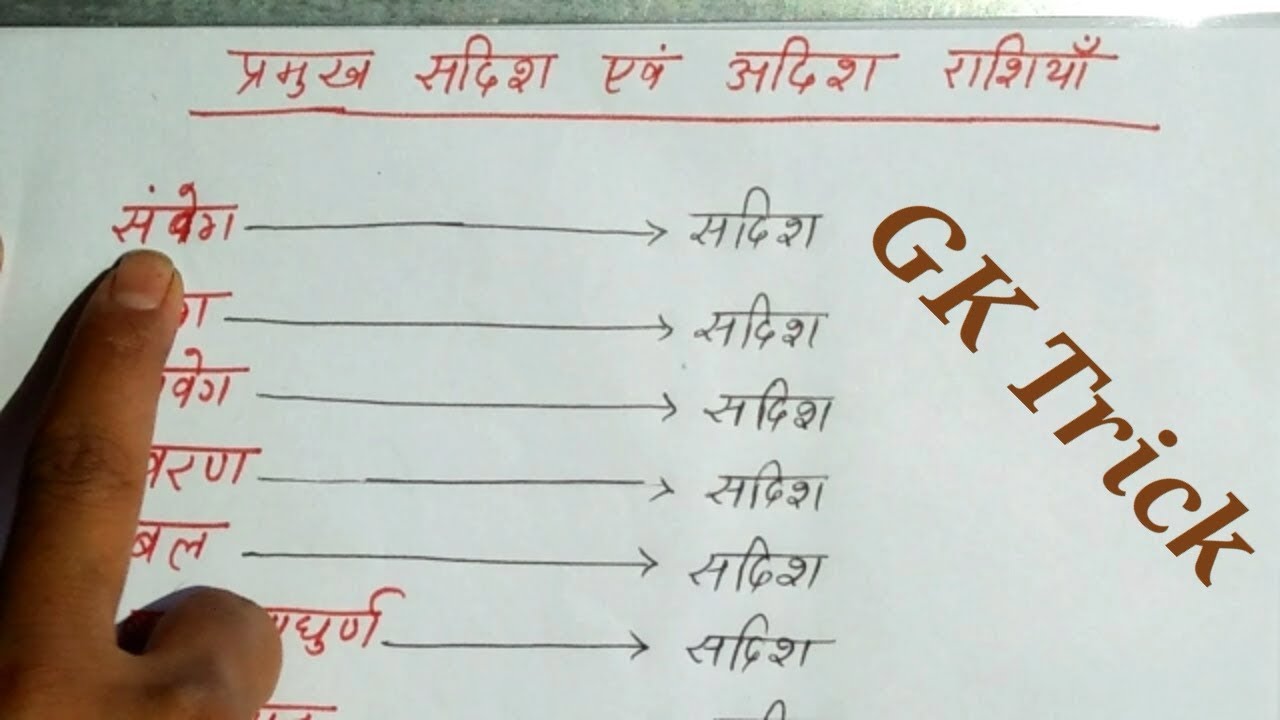 प्रमुख सदिश एवं अदिश राशियाँ
संवेग → सदिश
→ सदिश
→ सदिश
→ सदिश
बल → सदिश
→ सदिश
GK Trick